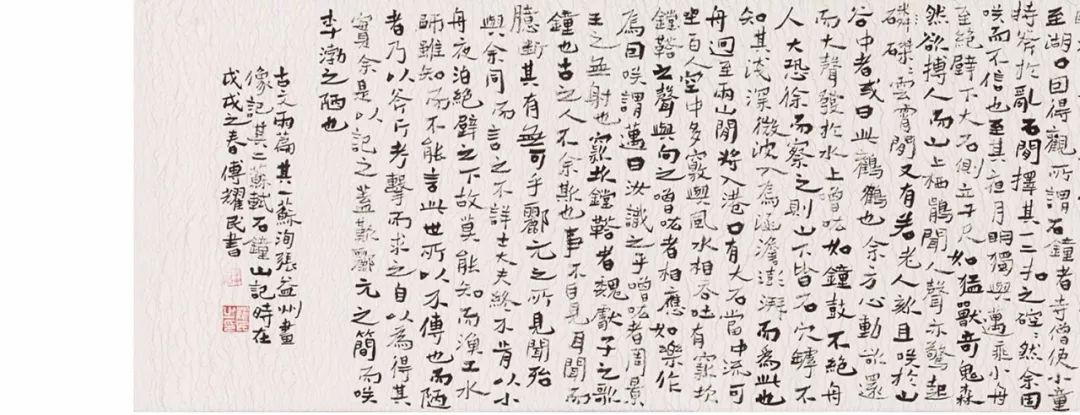 至湖口因得觀所謂石鐘者寺僧使小童
持斧於亂石間擇其一二扣之硿然余固
咲而不信也至其夜月明獨與萬乘小舟
至絕壁下大石側立千尺如猛獸奇鬼森
然欲搏人而山上栖鶻聞人聲亦驚起
磔磔雲霄間又有若老人欬且咲於山
谷中者或曰此鸛鶴也余方心動欲還
而大聲發於水上噌吰如鐘鼓不絕舟
人大恐徐而察之則山下皆石穴罅不
知其淺深微波入焉涵澹澎湃而為此也
舟迴至兩山間將入港口有大石當中流可
坐百人空中多竅與風水相吞吐有窾坎
鏜鞳之聲與向之噌吰者相應如樂作
焉因咲謂萬曰汝識之乎噌吰者周景
王之無射也窾坎鏜鞳者魏獻子之歌
鐘也古之人不余欺也事不目見耳聞而
臆斷其有無可乎酈元之所見聞殆
與余同而言之不詳士大夫終不肯以小
舟夜泊絕壁之下故莫能知而漁工水
師雖知而不能言此世所以不傳也而陋
者乃以斧斤考擊而求之自以為得其
實余是以記之蓋歎酈元之簡而咲
李渤之陋也
古文兩篇其一蘇洵張益州畫
像記其二蘇軾石鐘山記時在
戊戌之春傅耀民書